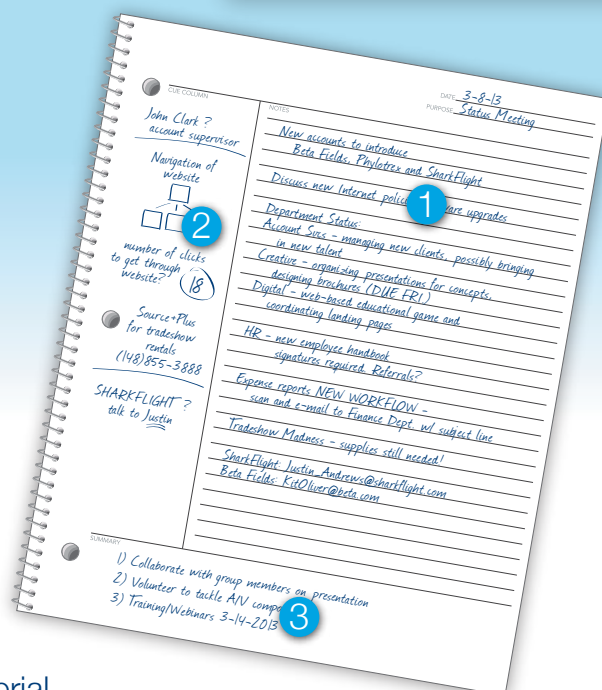 DATE 3-8-13
PURPOSE Status Meeting
CUE COLUMN
John Clark ?
account supervisor
Navigation of
website
2
number of clicks
to get through
website? 18
Source+Plus
for tradeshow
rentals
(148)855-3888
SHARKFLIGHT ?
talk to Justin
NOTES
New accounts to introduce
Beta Fields, Phylotrex and SharkFlight
Discuss new Internet 1 upgrades
Department Status:
Account Svcs - managing new clients, possibly bringing
in new talent
Creative - organizing presentations for concepts,
designing brochures (DUE FRI.)
Digital - web-based educational game and
coordinating landing pages
HR - new employee handbook
signatures required. Referrals?
Expense reports NEW WORKFLOW -
scan and e-mail to Finance Dept. w/ subject line
Tradeshow Madness - supplies still needed!
SharkFlight: Justin_Andrews@sharkflight.com
Beta Fields: KitOliver@beta.com
SUMMARY
1) Collaborate with group members on presentation
2) Volunteer to tackle A/V
3) Training/Webinars 3-14-2013
3